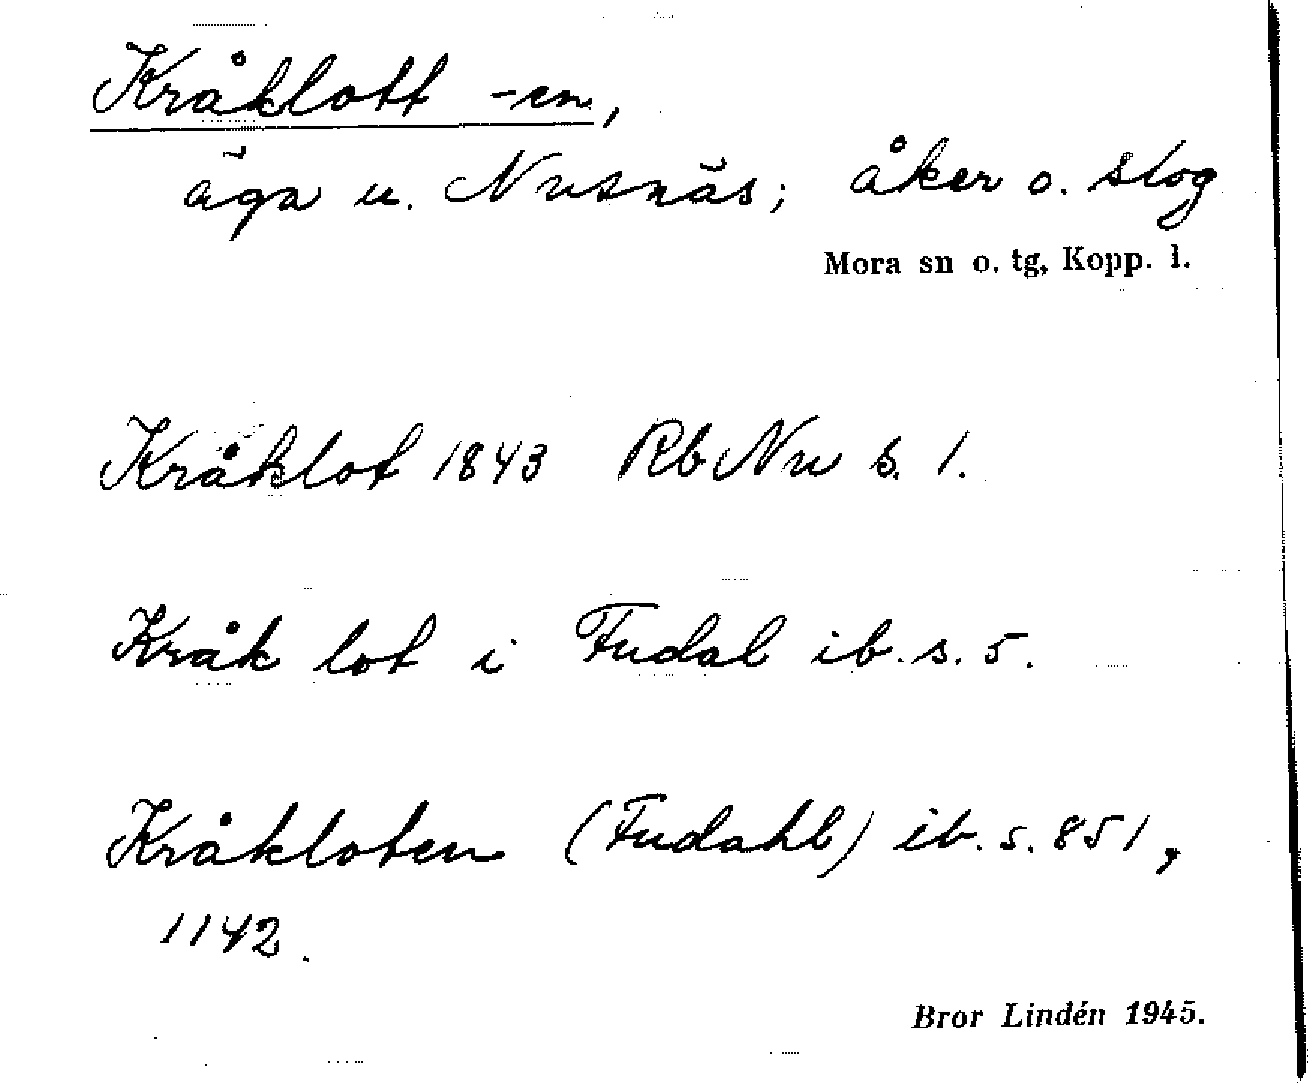 Kråklott -en,
äga u. Nusnäs; åker o. slog
Mora sn o. tg, Kopp. l.
Kråklot 1843 Rb Nu s. 1.
Kråk lot i Fudal ib. s. 5.
Kråkloten (Fudahl) ib. s. 851,
1142.
Bror Lindén 1945.